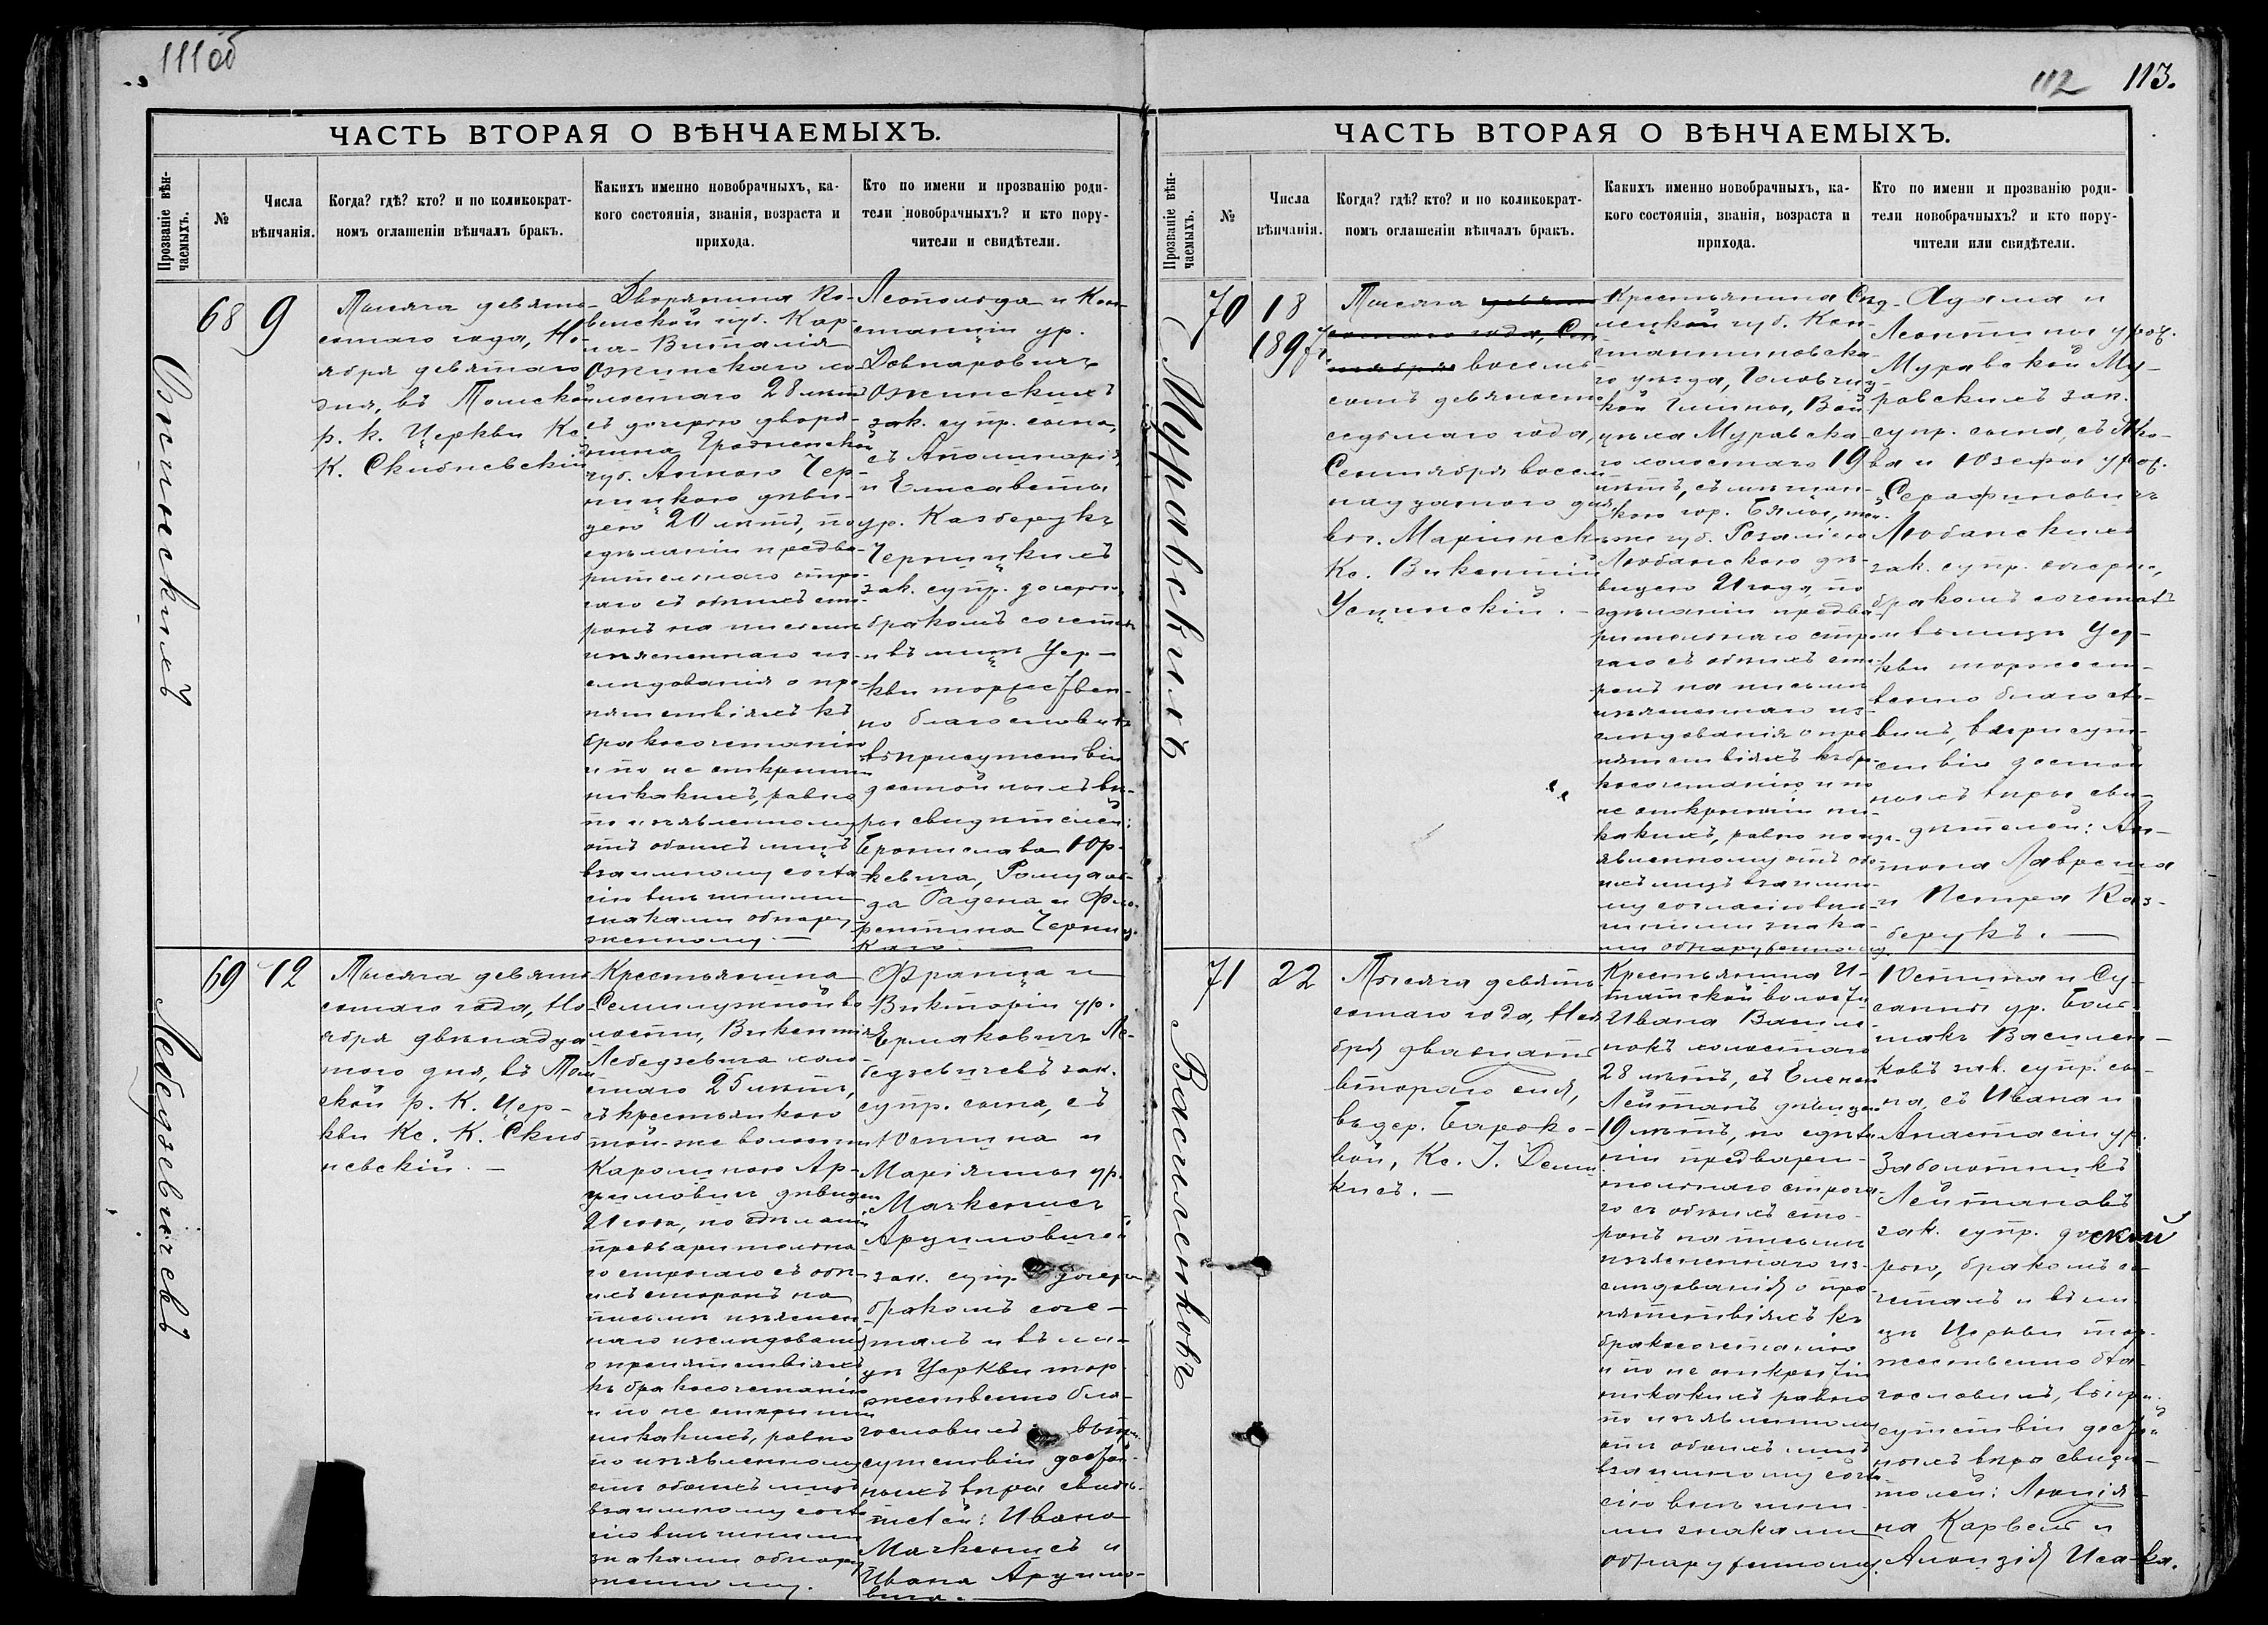 111 об
112 113.
ЧАСТЬ ВТОРАЯ О ВѢНЧАЕМЫХЪ.
Прозваніе вѣн-
чаемыхъ.
№
Числа
вѣнчанія.
Когда? гдѣ? кто? и по коликократ-
номъ оглашеніи вѣнчалъ бракъ.
Какихъ именно новобрачныхъ, ка-
кого состоянія, званія, возраста и
прихода.
Кто по имени и прозванію роди-
тели новобрачныхъ? и кто пору-
чители и свидѣтели.
Ожинскихъ
68
9
Тысяча девять-
сотаго года, Но-
ября девятаго
дня, въ Томской
р. к. Церкви Кс.
К. Скибневскій
Дворянина Ко-
венской губ. Кар-
ла-Виталія
Ожинскаго хо-
лостаго 28 лѣтъ
съ дочерью дворя-
нина Гродненской
губ. Анною Чер-
ницкою дѣви-
цею 20 лѣтъ, по
сдѣланіи предва-
рительнаго стро-
гаго съ обѣихъ сто-
ронъ на письмѣ
изъясненнаго из-
слѣдованія о пре-
пятствіяхъ къ
бракосочетанію
и по не открытіи
никакихъ, равно
по изъявленному
отъ обоихъ лицъ
взаимному согла-
сію внѣшними
знаками обнару-
женному.—
Леопольда и Кон-
станціи ур.
Довнаровичъ
Ожинскихъ
зак. супр. сына,
съ Аполинарія
и Елисаветы
ур. Казберукъ
Черницкихъ
зак. супр. дочерью,
бракомъ сочеталъ
и въ лицѣ Цер-
кви торжествен-
но благословилъ
въ присутствіи
достойныхъ вѣ-
ры свидѣтелей:
Бронислава Юр-
кевича, Ромуаль-
да Радена и Фло-
рентина Черниц-
каго.—
Лебедзевичевъ
69
12
Тысяча девять-
сотаго года, Но-
ября двѣнадца-
таго дня, въ Том-
ской р. К. Цер-
кви Кс. К. Скиб-
невскій.—
Крестьянина
Семилужной во-
лости, Викентія
Лебедзевича холо-
стаго 25 лѣтъ,
съ крестьянкою
той-же волости
Каролиною Ар-
цимовичъ дѣвицею
21 года, по сдѣланіи
предварительна-
го строгаго съ обѣ-
ихъ сторонъ на
письмѣ изъяснен-
наго изслѣдованія
о препятствіяхъ
къ бракосочетанію
и по не открытіи
никакихъ, равно
по изъявленному
отъ обоихъ лицъ
взаимному согла-
сію внѣшними
знаками обнару-
женному.
Франца и
Викторіи ур.
Ермаковичъ Ле-
бедзевичевъ зак.
супр. сына, съ
Юстина и
Маріянны ур.
Мачкенисъ
Арцимовичей
зак. супр. дочерью
бракомъ соче-
талъ и въ ли-
цѣ Церкви тор-
жественно бла-
гословилъ въ при-
сутствіи достой-
ныхъ вѣры свидѣ-
телей: Ивана
Мачкенисъ и
Ивана Арцимо-
вича.—
ЧАСТЬ ВТОРАЯ О ВѢНЧАЕМЫХЪ.
Прозваніе вѣн-
чаемыхъ.
№
Числа
вѣнчанія.
Когда? гдѣ? кто? и по коликократ-
номъ оглашеніи вѣнчалъ бракъ.
Какихъ именно новобрачныхъ, ка-
кого состоянія, званія, возраста и
прихода.
Кто по имени и прозванію роди-
тели новобрачныхъ? и кто пору-
чители или свидѣтели.
Муравскихъ
70
18
1897 г.
Тысяча девять
сотаго года, Сен
тября восемь-
сотъ девяносто
седьмаго года,
Сентября восем-
надцатаго дня
вг. Маріинскѣ
Кс. Викентій
Усцинскій.—
Крестьянина Сѣд-
лецкой губ. Кон-
стантиновска-
го уѣзда, Головчиц-
кой гмины, Вой-
цѣха Муравска-
го холостаго 19
лѣтъ, съ мѣщан-
кою гор. Бялы, той-
же губ. Розалію
Любанскою дѣ-
вицею 21 года, по
сдѣланіи предва-
рительнаго стро-
гаго съ обѣихъ сто-
ронъ на письмѣ
изъясненнаго из-
слѣдованія о пре-
пятствіяхъ къ бра-
косочетанію и по
не открытіи ни-
какихъ, равно по изъ-
явленному отъ обо-
ихъ лицъ взаимно-
му согласію внѣ-
шними знака-
ми обнаруженному
Адама и
Леонтины урож.
Муравской Му-
равскихъ зак.
супр. сына, съ Яко-
ва и Юзефы урож.
Серафиновичъ
Любанскихъ
зак. супр. дочерью,
бракомъ сочеталъ
и въ лицѣ Цер-
кви торжест-
венно благосло-
вилъ, въ присут-
ствіи достой-
ныхъ вѣры сви-
дѣтелей: Ан-
тона Лавреца
и Петра Каз-
берукъ.—
Василенковъ
71
22
Тысяча девять-
сотаго года, Ноя-
бря двадцать
втораго дня,
въ дер. Бороко-
вой, Кс. І. Деми-
кисъ.—
Крестьянина И-
татской волости
Ивана Васи­ле-
нокъ холостаго
28 лѣтъ, съ Еленою
Лейтанъ дѣвицею
19 лѣтъ, по сдѣла-
ніи предвари-
тельнаго строга-
го съ обѣихъ сто-
ронъ на письмѣ
изъясненнаго из-
слѣдованія о пре-
пятствіяхъ къ
бракосочетанію
и по не открытіи
никакихъ равно
по изъявленному
отъ обоихъ лицъ
взаимному согла-
сію внѣшни-
ми знаками
обнаруженному.
Юстина и Су-
санны ур. Боль-
шакъ Василен-
ковъ зак. супр. сы-
на, съ Ивана и
Анастасіи ур.
Заболотникъ
Лейтановъ
зак. супр. до
рью, бракомъ со-
четалъ и въ ли-
цѣ Церкви тор-
жественно бла-
гословилъ, въ при-
сутствіи достой-
ныхъ вѣры свидѣ-
телей: Люція-
на Карвель и
Алоизія Иса-ка.